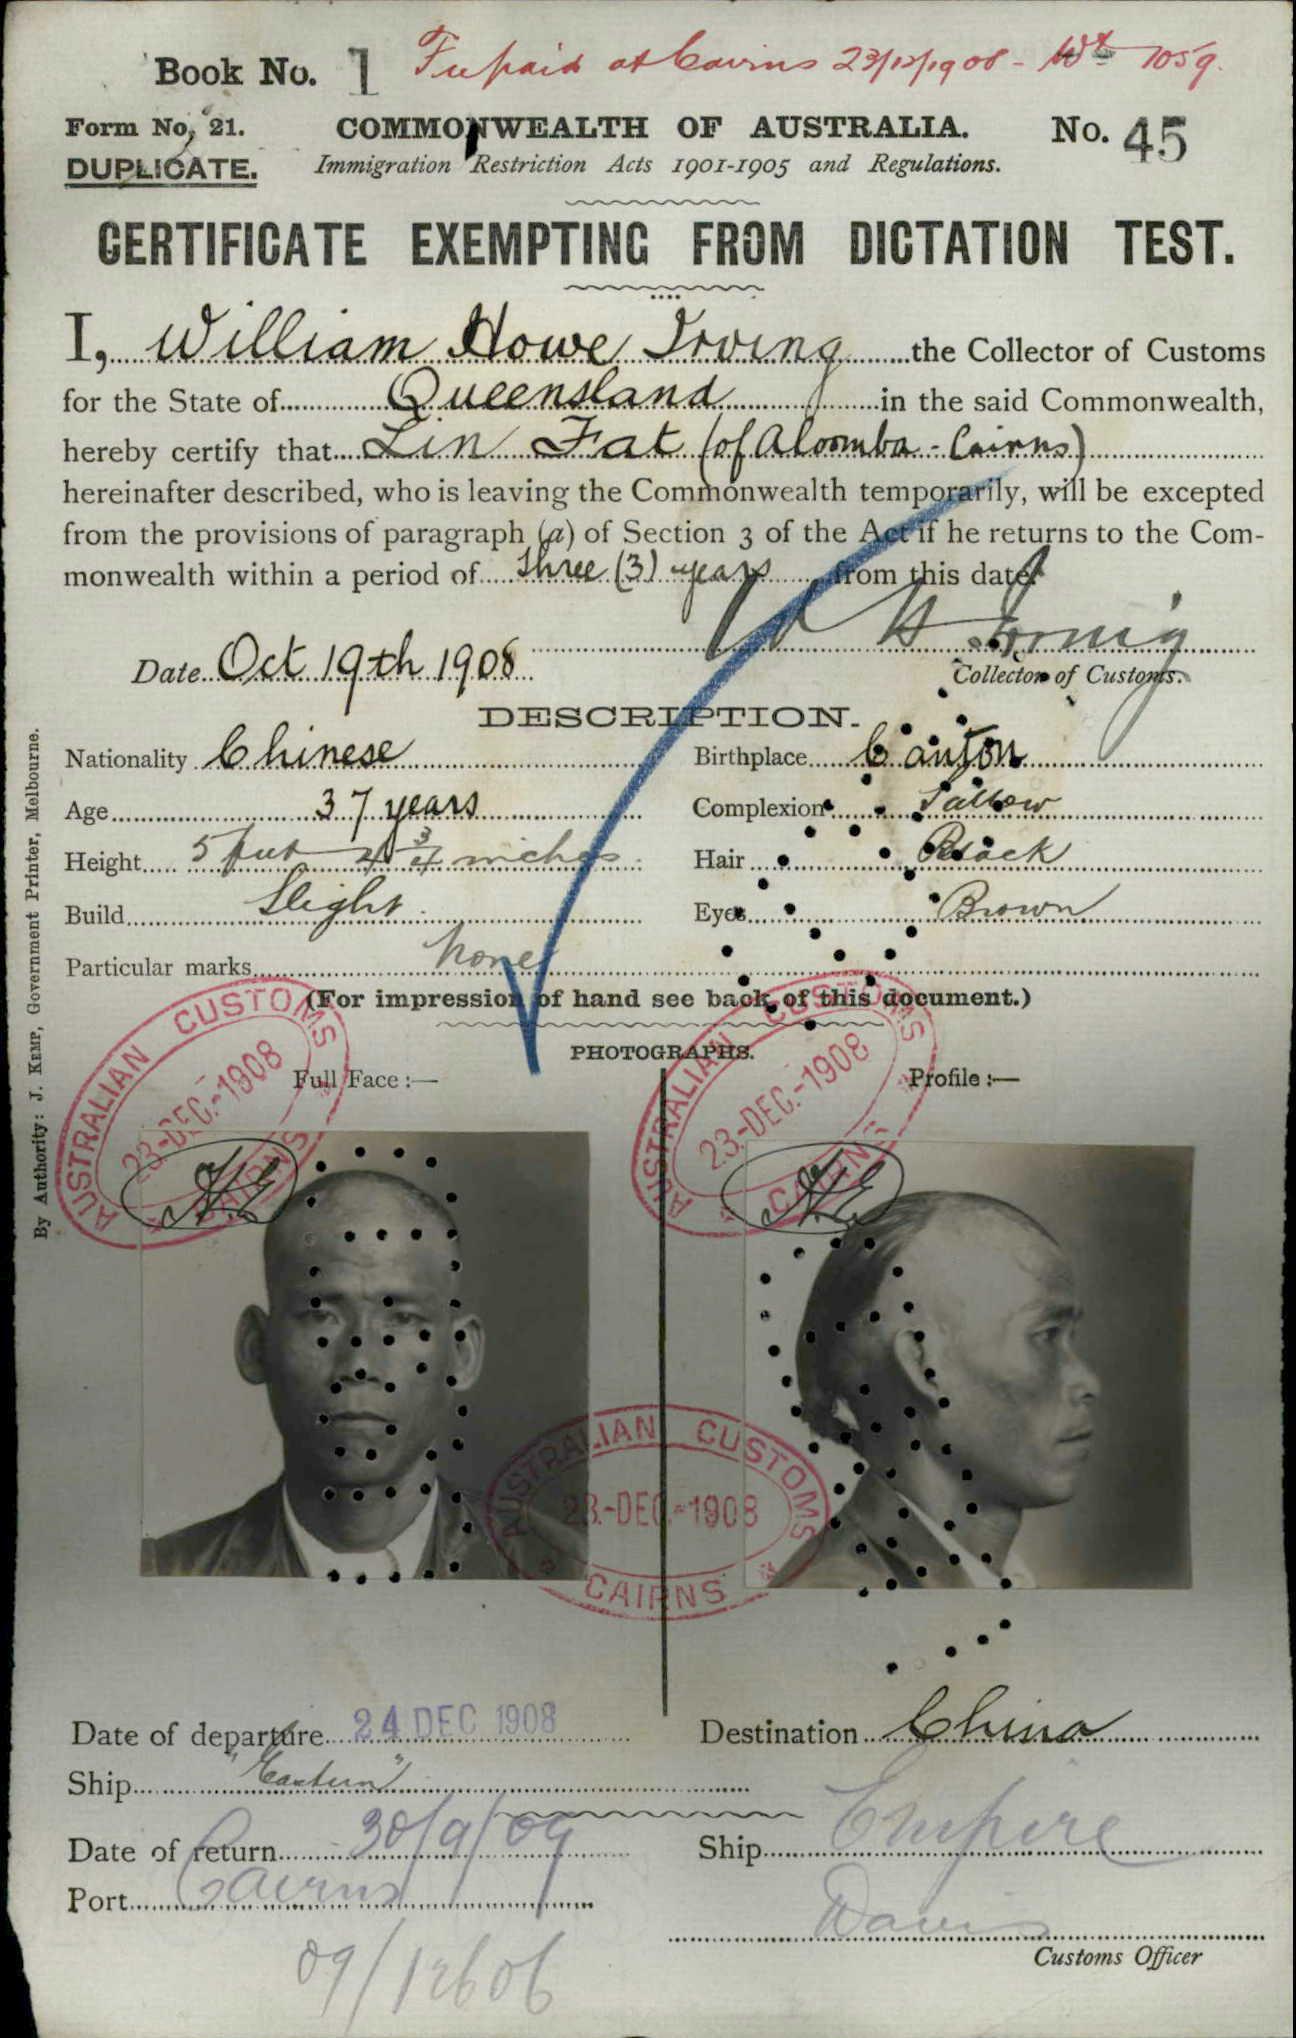 Book No. 1 Fee paid at Cairns 23/12/1908 - 7059.
Form No. 21. COMMONWEALTH OF AUSTRALIA. No. 45
DUPLICATE. Immigration Restriction Acts 1901-1905 and Regulations.
CERTIFICATE EXEMPTING FROM DICTATION TEST.
I, William Howe Irving the Collector of Customs
for the State of Queensland in the said Commonwealth,
hereby certify that Lin Fat (of Aloomba - Cairns)
hereinafter described, who is leaving the Commonwealth temporarily, will be excepted
from the provisions of paragraph (a) of Section 3 of the Act if he returns to the Com-
monwealth within a period of three (3) years from this date.
W H Irving
Date Oct 19th 1908
Collector of Customs.
DESCRIPTION.
Nationality Chinese Birthplace Canton
Age 37 years Complexion Sallow
Height 5 feet 4 3/4 inches Hair Black
Build Slight Eyes Brown
Particular marks None
(For impression of hand see back of this document.)
PHOTOGRAPHS.
Full Face :— Profile :—
AUSTRALIAN CUSTOMS
23-DEC.-1908
CAIRNS
AUSTRALIAN CUSTOMS
23-DEC.-1908
CAIRNS
AUSTRALIAN CUSTOMS
23.-DEC.-1908
CAIRNS
Date of departure 24 DEC 1908 Destination China
Ship "Eastern"
Date of return 30/9/09 Ship Empire
Port Cairns
Davis
Customs Officer
09/12606
By Authority: J. KEMP, Government Printer, Melbourne.